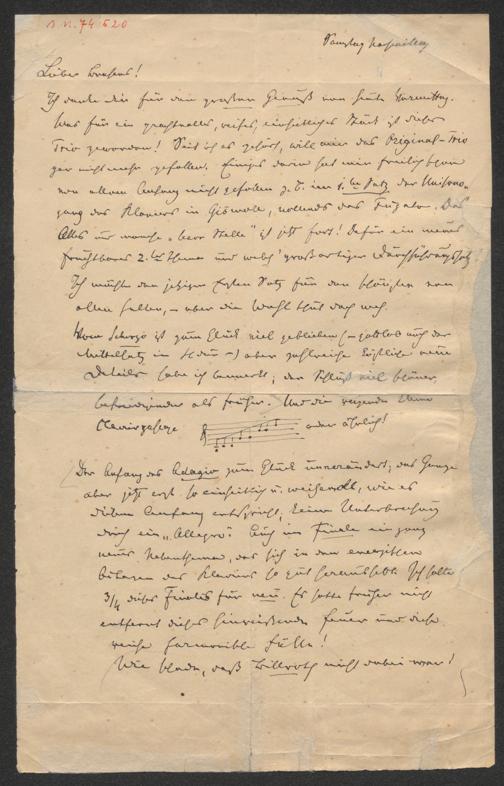 I. N. 74.520
Samstag Nachmittag
Lieber Brahms!
Ich danke dir für den großen Genuß von heute Vormittag.
Was für ein prachtvolles, reifes, einheitliches Stück ist dieses
Trio geworden! Seit ich es gehört, will mir das Original-Trio
gar nicht mehr gefallen. Einiges darin hat mir freilich schon
von allem Anfang nicht gefallen z. B. im 1. Satz der Unisono-
gang des Klaviers in Gis moll, vollends das Fugato. Das
Alles und manche "leere Stelle" ist jetzt fort! Dafür ein neues
fruchtbares 2. Thema und welch' großartiger Durchführungssatz!
Ich möchte den jetzigen Ersten Satz für den schönsten von
allen halten, – aber die Wahl thut doch weh.
Vom Scherzo ist zum Glück viel geblieben (– gottlob auch der
Mittelsatz in H dur –) aber zahlreiche köstliche neue
Details habe ich bemerkt; der Schluß viel schöner,
befriedigender als früher. Und die reizende kleine
Clavierpassage oder ähnlich!
Der Anfang des Adagio zum Glück unverändert; das Ganze
aber jetzt erst so einheitlich u. weihevoll, wie es
diesem Anfang entspricht, keine Unterbrechung
durch ein "Allegro". Auch im Finale ein ganz
neues Nebenthema, das sich in den energischen
des Klaviers so gut heraushebt. Ich halte
3/4 dieses Finales für neu. Es hatte früher nicht
entfernt dieses hinreißende Feuer und diese
reiche harmonische Fülle!
Wie schade, daß Billroth nicht dabei war!